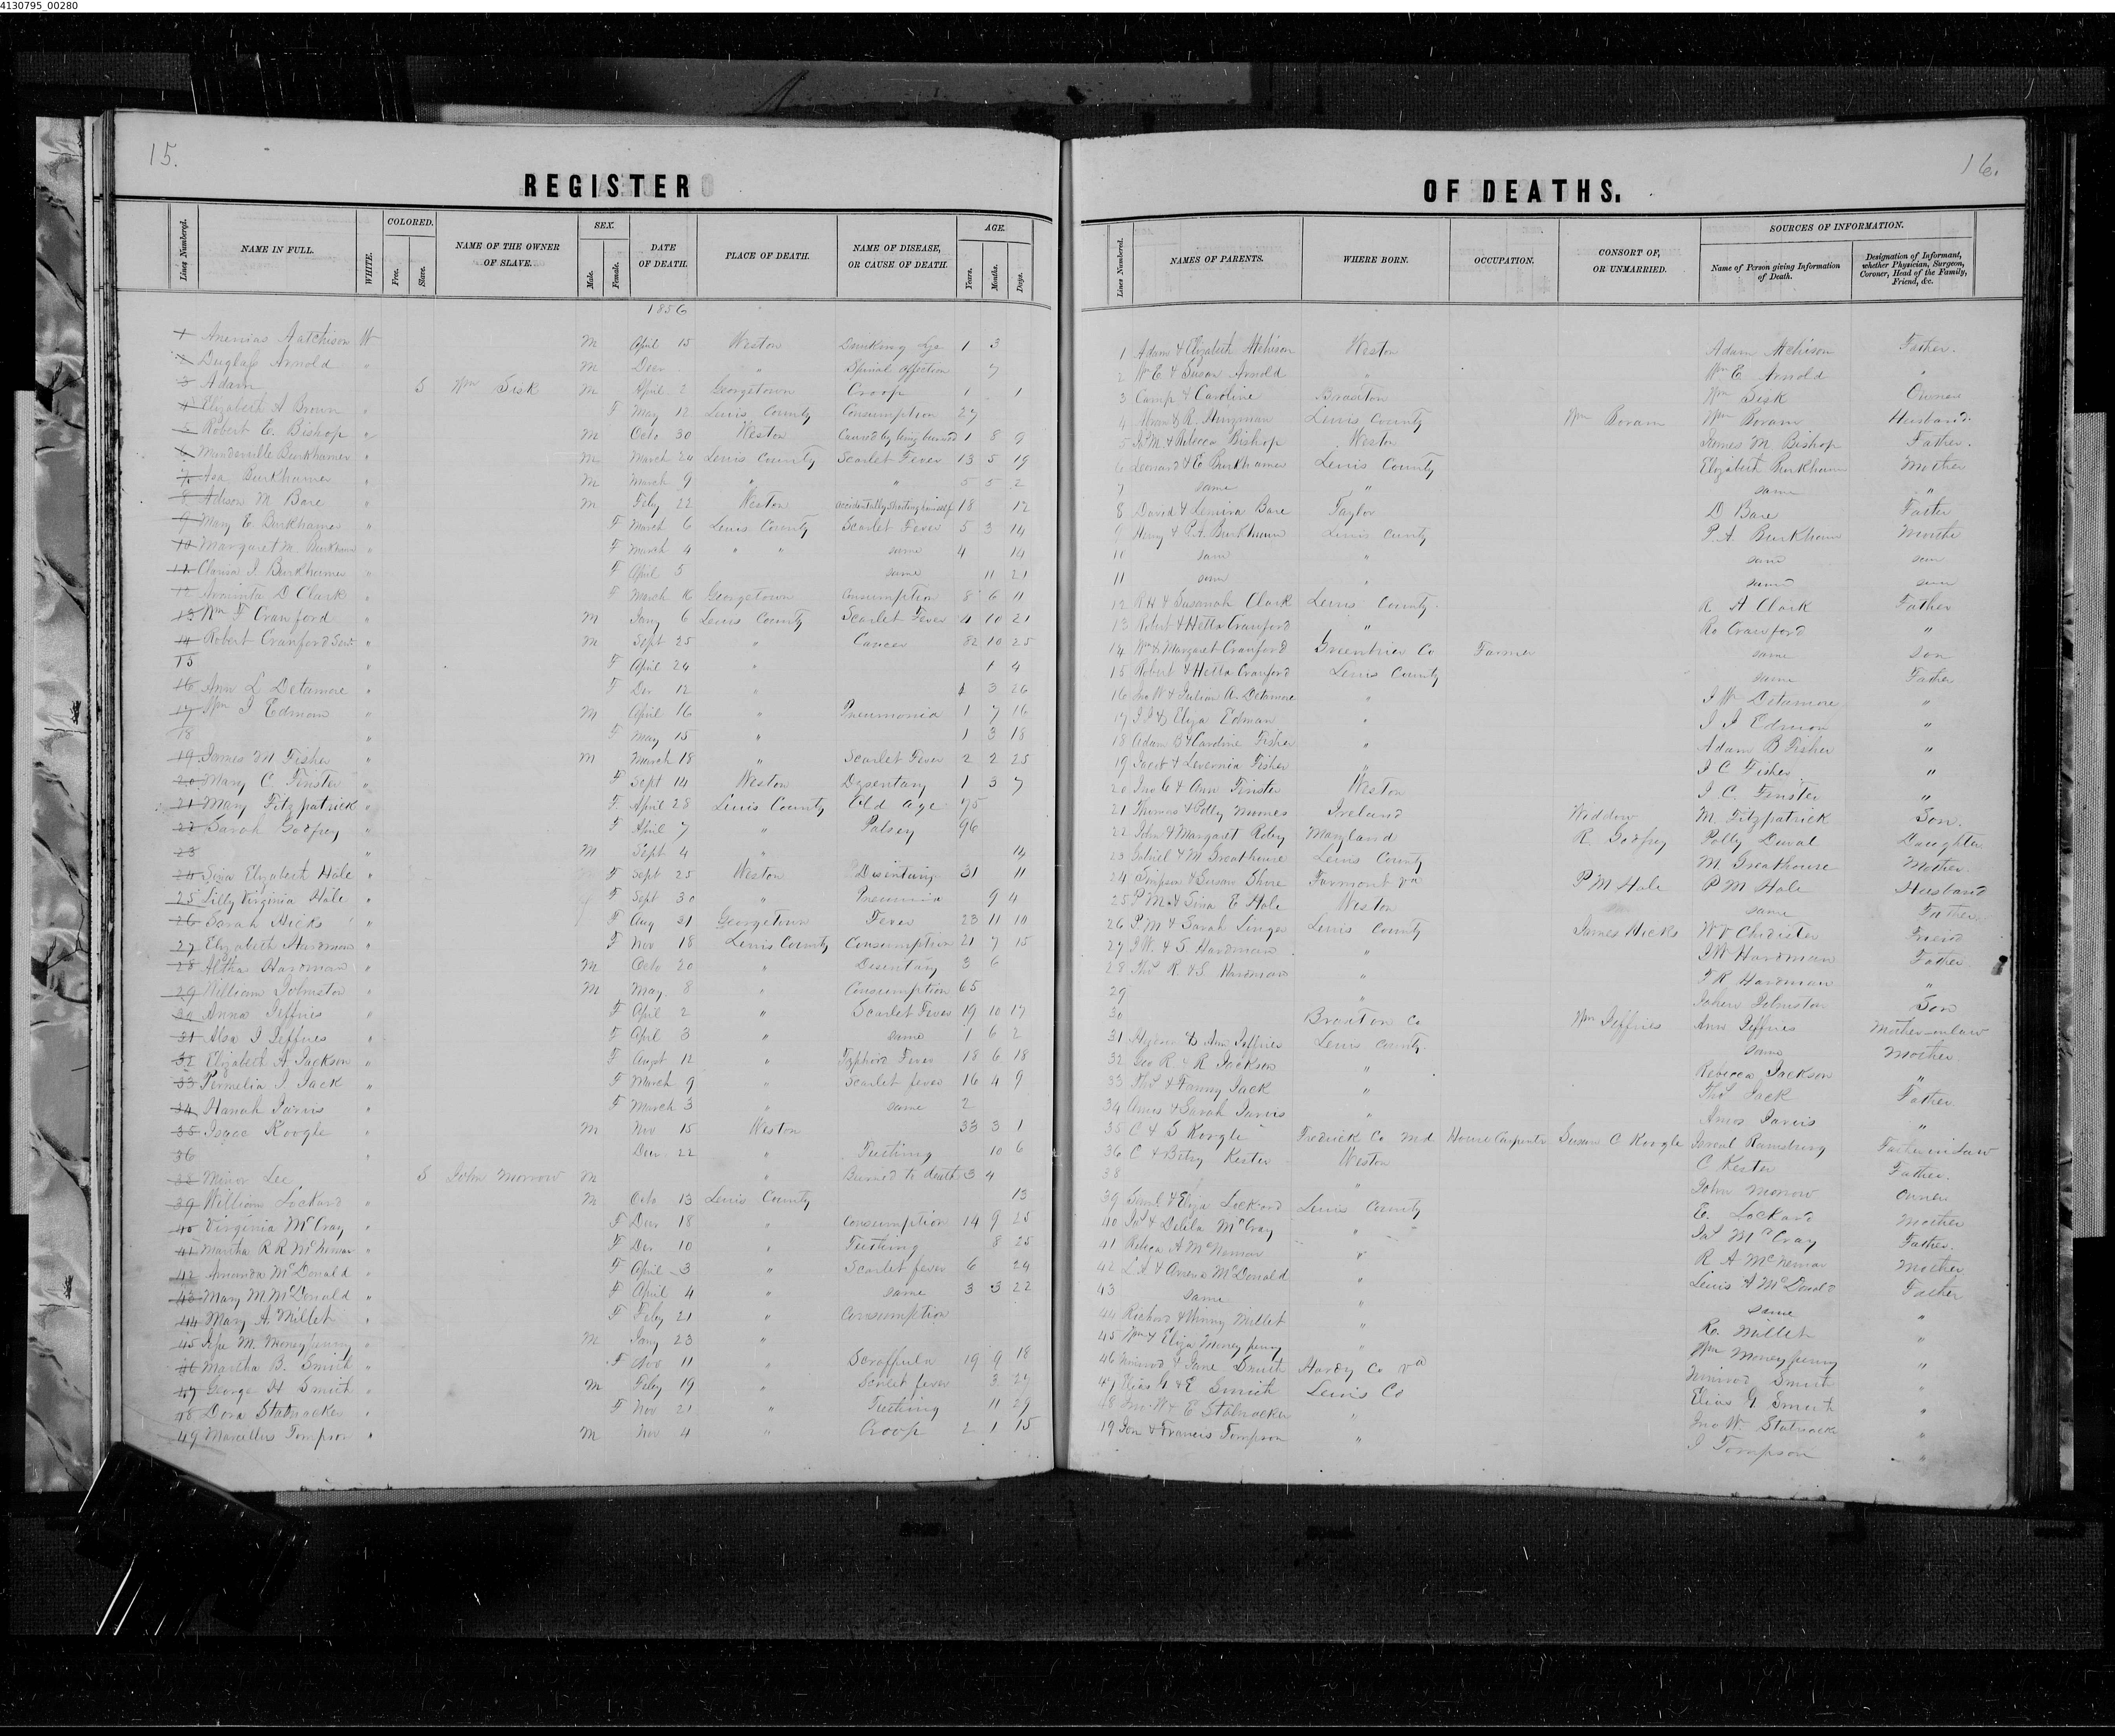 4130795_00280
15.
REGISTER
Lines Numbered.
NAME IN FULL.
WHITE.
COLORED.
Free.
Slave.
NAME OF THE OWNER
OF SLAVE.
SEX.
Male.
Female.
DATE
OF DEATH.
PLACE OF DEATH.
NAME OF DISEASE,
OR CAUSE OF DEATH.
AGE.
Years.
Months.
Days.
1856
1 Ananias Aatchison W M April 15 Weston Drinking Lye 1 3
2 Duglass Arnold " M Decr " Spinal affection 7
3 Adam S Wm Sisk M April 2 Georgetown Croop 1 1
4 Elizabeth A Brown " F May 12 Lewis County Consumption 27
5 Robert E. Bishop " M Octo 30 Weston Caused by being burned 1 8 9
6 Manderville Burkhamer " M March 24 Lewis County Scarlet Fever 13 5 19
7 Asa Burkhamer " M March 9 " " 5 5 2
8 Adison M Bare " M Feby 22 Weston accidentally shooting himself 18 12
9 Mary E Burkhamer " F March 6 Lewis County Scarlet Fever 5 3 14
10 Margaret M. Burkham " F March 4 " " same 4 14
11 Clarisa J Burkhamer " F April 5 same 11 21
12 D Clark " F March Georgetown Consumption 8 6 11
13 Wm F Crawford " M Jany 6 Lewis County Scarlet Fever 4 10 21
14 Robert Crawford Senr " M Sept 25 " Cancer 82 10 25
15 " F April 24 1 4
16 Ann L Detamore " F Dec 12 " 1 3 26
17 Wm J Edmon " M April 16 " Pneumonia 1 7 16
18 " F May 15 " 1 3 18
19 James M Fisher " M March 18 " Scarlet Fever 2 2 25
20 Mary C Finster " F Sept 14 Weston Dysentary 1 3 7
21 Mary Fitzpatrick " F April 28 Lewis County Old Age 75
22 Sarah Godfrey " F April 7 " Palsey 96
23 " M Sept 4 " 14
24 Sina Elizabeth Hale " F Sept 25 Weston Disentary 31 11
25 Lilly Virginia Hale " F Sept 30 " Pneumonia 9 4
26 Sarah Hicks " F Aug 31 Georgetown Fever 23 11 10
27 Elizabeth Hardman " F Nov 18 Lewis County Consumption 21 7 15
28 Altha Hardman " M Octo 20 " Disentary 3 6
29 William Johnston " M May 8 " Consumption 65
30 Anna Jeffries " F April 2 " Scarlet Fever 19 10 17
31 Alsa J Jeffries " F April 3 " same 1 6 2
32 Elizabeth A Jackson " F Augst 12 " Typhoid Fever 18 6 18
33 Permelia J. Jack " F March 9 " Scarlet fever 16 4 9
34 Hanah Jarvis " F March 3 " same 2
35 Isaac Koogle " M Nov 15 Weston 33 3 1
36 " Decr 22 " Teething 10 6
38 Minor Lee S John Morrow M " Burned to death 3 4
39 William Lockard " M Octo 13 Lewis County 13
40 Virginia McCray " F Decr 18 " Consumption 14 9 25
41 Martha R R McNemar " F Dec 10 " Teething 8 25
42 Amanda McDonald " F April 3 " Scarlet fever 6 24
43 Mary M. McDonald " F April 4 " same 3 3 22
44 Mary A. Millet " F Feby 21 " Consumption
45 M. Moneypenny " M Jany 23 "
46 Martha B. Smith " F Nov 11 " Scroffula 19 9 18
47 George H Smith " M Feby 19 " Scarlet fever 3 27
48 Dora Stalnacker " F Nov 21 " Teething 11 29
49 Marcellus Tompson " M Nov 4 " Croop 2 1 15
16.
OF DEATHS.
Lines Numbered.
NAMES OF PARENTS.
WHERE BORN.
OCCUPATION.
CONSORT OF,
OR UNMARRIED.
SOURCES OF INFORMATION.
Name of Person giving Information
of Death.
Designation of Informant,
whether Physician, Surgeon,
Coroner, Head of the Family,
Friend, &c.
1 Adam & Elizabeth Atchison Weston Adam Atchison Father.
2 Wm E & Susan Arnold " Wm E Arnold "
3 Camp & Caroline Braxton Wm Sisk Owner
4 & R. Lewis County Wm Boram Wm Boram Husband
5 Js M. & Rebecca Bishop Weston James M Bishop Father.
6 Leonard & E Burkhamer Lewis County Elizabeth Burkham Mother
7 same " same "
8 David & Lemira Bare Taylor D Bare Father
9 Henry & P. A. Burkham Lewis County P. A. Burkham Mother
10 same " same same
11 same " same same
12 R H & Susanah Clark Lewis County. R H Clark Father
13 Robert & Hetta Crawford " Ro Crawford "
14 Wm & Margaret Crawford Greenbrier Co Farmer same son
15 Robert & Hetta Crawford Lewis County same Father
16 Jno W & Julian A. Detamore " J W Detamore "
17 J J & Eliza Edman " J J Edmon "
18 Adam B & Caroline Fisher " Adam B Fisher "
19 Jacob & Levernia Fisher " J C Fisher "
20 Jno C & Ann Finster Weston J. C. Finster "
21 Thomas & Polly Moones Ireland Widdow M. Fitzpatrick Son.
22 John & Margaret Roby Maryland R. Godfrey Polly Duval Daughter
23 Gabriel & M Greathouse Lewis County M Greathouse Mother.
24 Simpson & Susan Shore Farmont Va P M Hale P M Hale Husband
25 P M & Sina E Hale Weston same Father
26 P. M & Sarah Linger Lewis County James Hicks W V Chidister Friend
27 J W. & S Hardman " J W Hardman Father
28 Ths R. & S. Hardman " T R Hardman "
29 " Johnston Son
30 Braxton Co Wm Jeffries Ann Jeffries Mother-in law
31 & Ann Jeffries Lewis County. same Mother.
32 Geo R. & R Jackson " Rebecca Jackson "
33 Ths & Fanny Jack " Ths Jack Father
34 Amos & Sarah Jarvis " Amos Jarvis "
35 C & S Koogle Fredrick Co Md House Carpenter Susan C Koogle Ramsburg Father in law
36 C & Betsy Kester Weston C Kester Father.
38 " John Morrow Owner
39 Saml & Eliza Lockard Lewis County E. Lockard Mother
40 Jas & Delila McCray " Jas McCray Father.
41 Rebeca A McNemar " R A McNemar Mother
42 L A & McDonald " Lewis A McDonald Father
43 same " same "
44 Richard & Winny Millet " Ro. Millet "
45 Wm & Eliza Moneypenny " Wm Moneypenny "
46 Nimrod & Jane Smith Hardy Co Va Nimrod Smith "
47 Elias G & E Smith Lewis Co Elias G Smith "
48 Jno. W & E Stalnacker " Jno W. Stalnacker "
49 Jon & Francis Tompson " J Tompson "